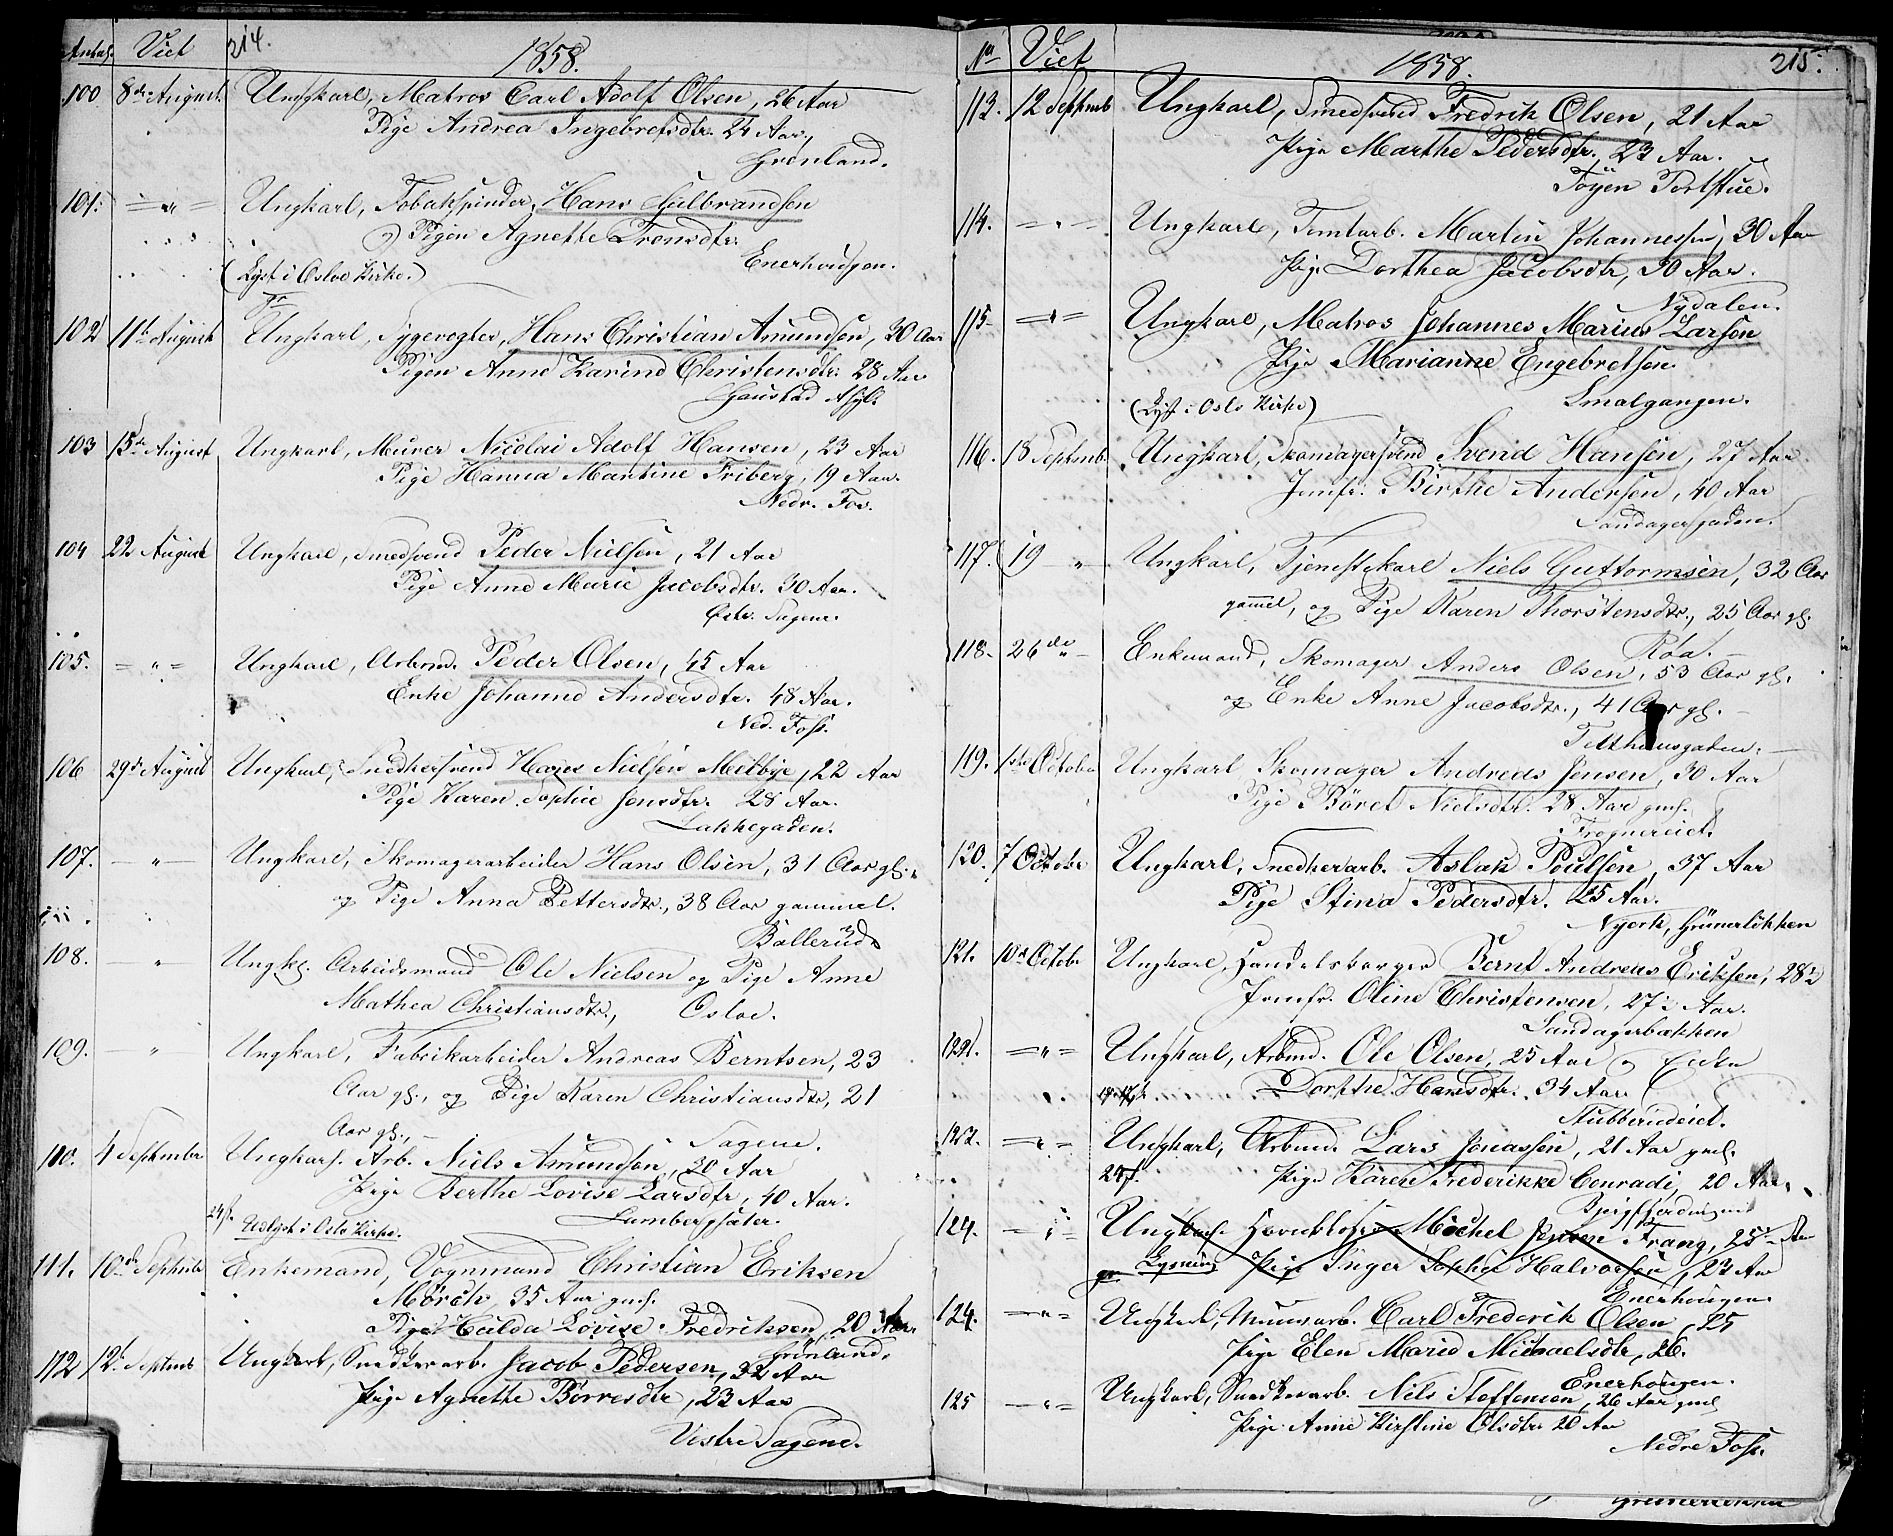 Antal. Viet 214. 1858.
100 8de August. Ungkarl, Matros Carl Adolf Olsen, 26 Aar
Pige Andrea Ingebretsdtr. 24 Aar,
Grønland.
101. = " = Ungkarl, Tobakspinder, Hans Gulbrandsen
og Pigen Agnethe Tronsdtr.
Enerhoudgen.
(Lyst i Osloe Kirke.)
102 11te August Ungkarl, Sygevogter, Hans Christian Amundsen, 30 Aar
Pigen Anne Karine Christensdtr. 28 Aar
Gaustad Asyl.
103 15de August Ungkarl, Murer Nicolai Adolf Hansen, 23 Aar
Pige Hanna Martine Friberg, 19 Aar.
Nedr. Fos.
104 22 August Ungkarl, Smedsvend Peder Nielsen, 21 Aar
Pige Anne Marie Jacobsdtr. 30 Aar.
Østr. Sagene.
105. = " = Ungkarl, Arbmd. Peder Olsen, 45 Aar
Enke Johanne Andersdtr. 48 Aar.
Ned. Foss.
106 29de August Ungkarl, Snedkersvend Hans Nielsen Melbye, 22 Aar
Pige Karen Sophie Jensdtr. 28 Aar.
Lakkegaden.
107. — " — Ungkarl, Skomagerarbeider Hans Olsen, 31 Aar gl.,
og Pige Anna Pettersdtr., 38 Aar gammel.
Ballerud
108. — " Ungkl. Arbeidsmand Ole Nielsen og Pige Anne
Mathea Christiansdtr., Osloe.
109. — " Ungkarl, Fabrikarbeider Andreas Berntsen, 23
Aar gl., og Pige Karen Christiansdtr, 21
Aar gl., — Sagene.
110. 4 September Ungkarl. Arb. Niels Amundsen, 30 Aar
Pige Berthe Lovise Larsdtr, 40 Aar.
24 f. Udlyst i Oslo Kirke. Lambergsæter.
111. 10de Septbr Enkemand, Vognmand Christian Eriksen
Mørch, 35 Aar gml.
Pige Hulda Lovise Fredriksen, 20 Aar.
Grønland.
112 12te Septmb Ungkarl, Snedkerarb. Jacob Pedersen, 22 Aar
Pige Agnethe Børresdtr, 23 Aar
Vestre Sagene.
No Viet 1858. 215.
113. 12 Septmb Ungkarl, Smedsvend Fredrik Olsen, 21 Aar
Pige Marthe Pedersdtr, 23 Aar.
Töyen Portstue.
114. — " — Ungkarl, Tomtarb. Martin Johannessen, 30 Aar
Pige Dorthea Jacobsdtr, 30 Aar.
Nydalen.
115 = " = Ungkarl, Matros Johannes Marius Larsen
Pige Marianne Engebretsen.
(Lyst i Oslo Kirke) Smalgangen.
116. 18 Septmb. Ungkarl, Skomagersvend Svend Hansen, 27 Aar
Jomfr. Birthe Andersen, 40 Aar
Sandagergaden.
117. 19 " Ungkarl, Tjenestekarl Niels Guttormsen, 32 Aar
gammel, og Pige Karen Thorstensdtr., 25 Aar gl.
Röa. —
118. 26de " — Enkemand, Skomager Anders Olsen, 53 Aar gl.
og Enke Anne Jacobsdtr., 41 Aar gl. —
Telthusgaden. —
119. 1ste October Ungkarl Skomager Andreas Jensen, 30 Aar
Pige Böret Nielsdtr. 28 Aar gml.
Frognereiet.
120. 7 Octobr Ungkarl, Snedkerarb. Aslak Poulsen, 37 Aar
Pige Stina Pedersdtr. 25 Aar.
Nyork, Grünerlökken
121. 10de Octobr Ungkarl, Handelsborger Bernt Andreas Eriksen, 28
Jomfr. Oline Christensen, 27 Aar.
Sandagerbakken
122. = " = Ungkarl, Arbmd. Ole Olsen, 25 Aar og Enke
Dorthe Hansdtr. 34 Aar
Stubberudeiet.
123. = " = Ungkarl, Arbmd. Lars Jonassen, 21 Aar gml.
24 f. Pige Karen Frederikke Conradi, 20 Aar.
124. — " — Ungkarl. Michel Jensen Frang, 25 Aar
Lysning Pige Inger Sophie Halvorsen, 23 Aar
Enerhougen.
124. — " — Ungkarl, Murerarb. Carl Frederik Olsen, 25
Pige Elen Marie Michaelsdtr, 26.
Enerhougen.
125 — " — Ungkarl, Snedkerarb. Nils Steffensen, 26 Aar gml
Pige Anne Kirstine Olsdtr 20 Aar
Nedre Foss.